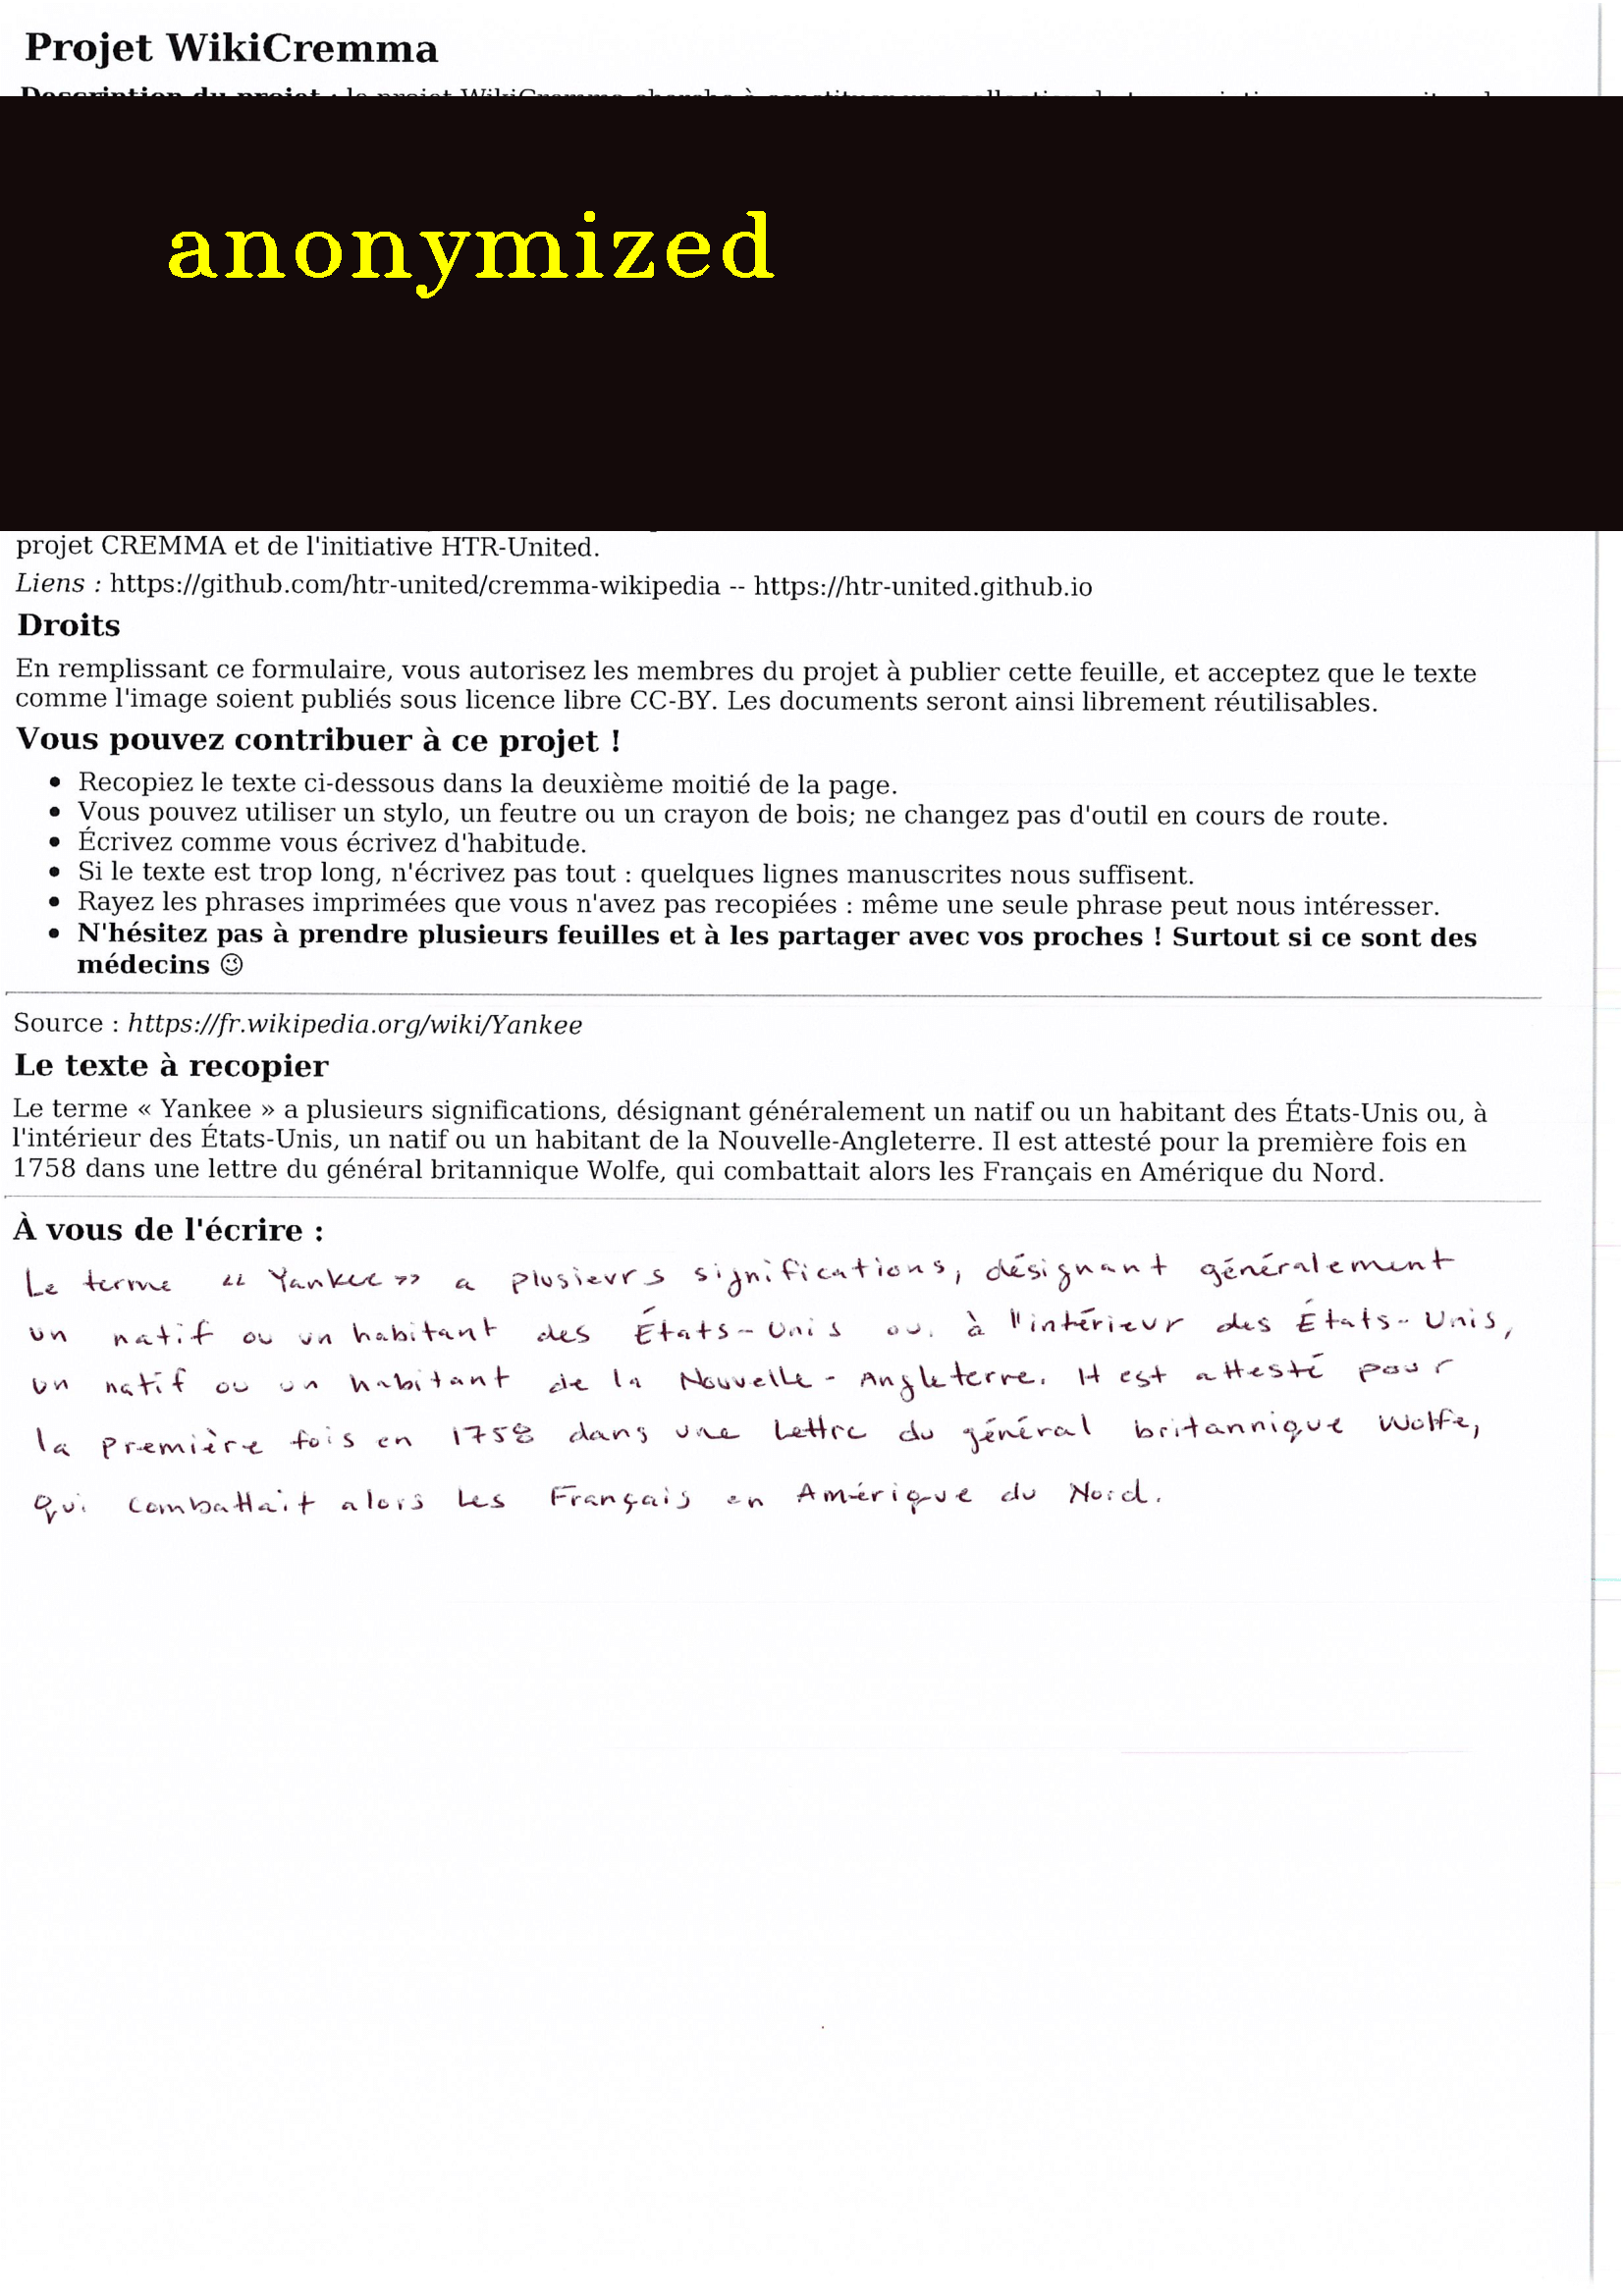 Projet WikiCremma
anonymized
projet CREMMA et de l'initiative HTR-United.
Liens : https://github.com/htr-united/cremma-wikipedia -- https://htr-united.github.io
Droits
En remplissant ce formulaire, vous autorisez les membres du projet à publier cette feuille, et acceptez que le texte
comme l'image soient publiés sous licence libre CC-BY. Les documents seront ainsi librement réutilisables.
Vous pouvez contribuer à ce projet !
• Recopiez le texte ci-dessous dans la deuxième moitié de la page.
• Vous pouvez utiliser un stylo, un feutre ou un crayon de bois; ne changez pas d'outil en cours de route.
• Écrivez comme vous écrivez d'habitude.
• Si le texte est trop long, n'écrivez pas tout : quelques lignes manuscrites nous suffisent.
• Rayez les phrases imprimées que vous n'avez pas recopiées : même une seule phrase peut nous intéresser.
• N'hésitez pas à prendre plusieurs feuilles et à les partager avec vos proches ! Surtout si ce sont des
médecins 😉
Source : https://fr.wikipedia.org/wiki/Yankee
Le texte à recopier
Le terme « Yankee » a plusieurs significations, désignant généralement un natif ou un habitant des États-Unis ou, à
l'intérieur des États-Unis, un natif ou un habitant de la Nouvelle-Angleterre. Il est attesté pour la première fois en
1758 dans une lettre du général britannique Wolfe, qui combattait alors les Français en Amérique du Nord.
À vous de l'écrire :
Le terme « Yankee » a plusieurs significations, désignant généralement
un natif ou un habitant des États-Unis ou, à l'intérieur des États-Unis,
un natif ou un habitant de la Nouvelle-Angleterre. Il est attesté pour
la première fois en 1758 dans une lettre du général britannique Wolfe,
qui combattait alors les Français en Amérique du Nord.